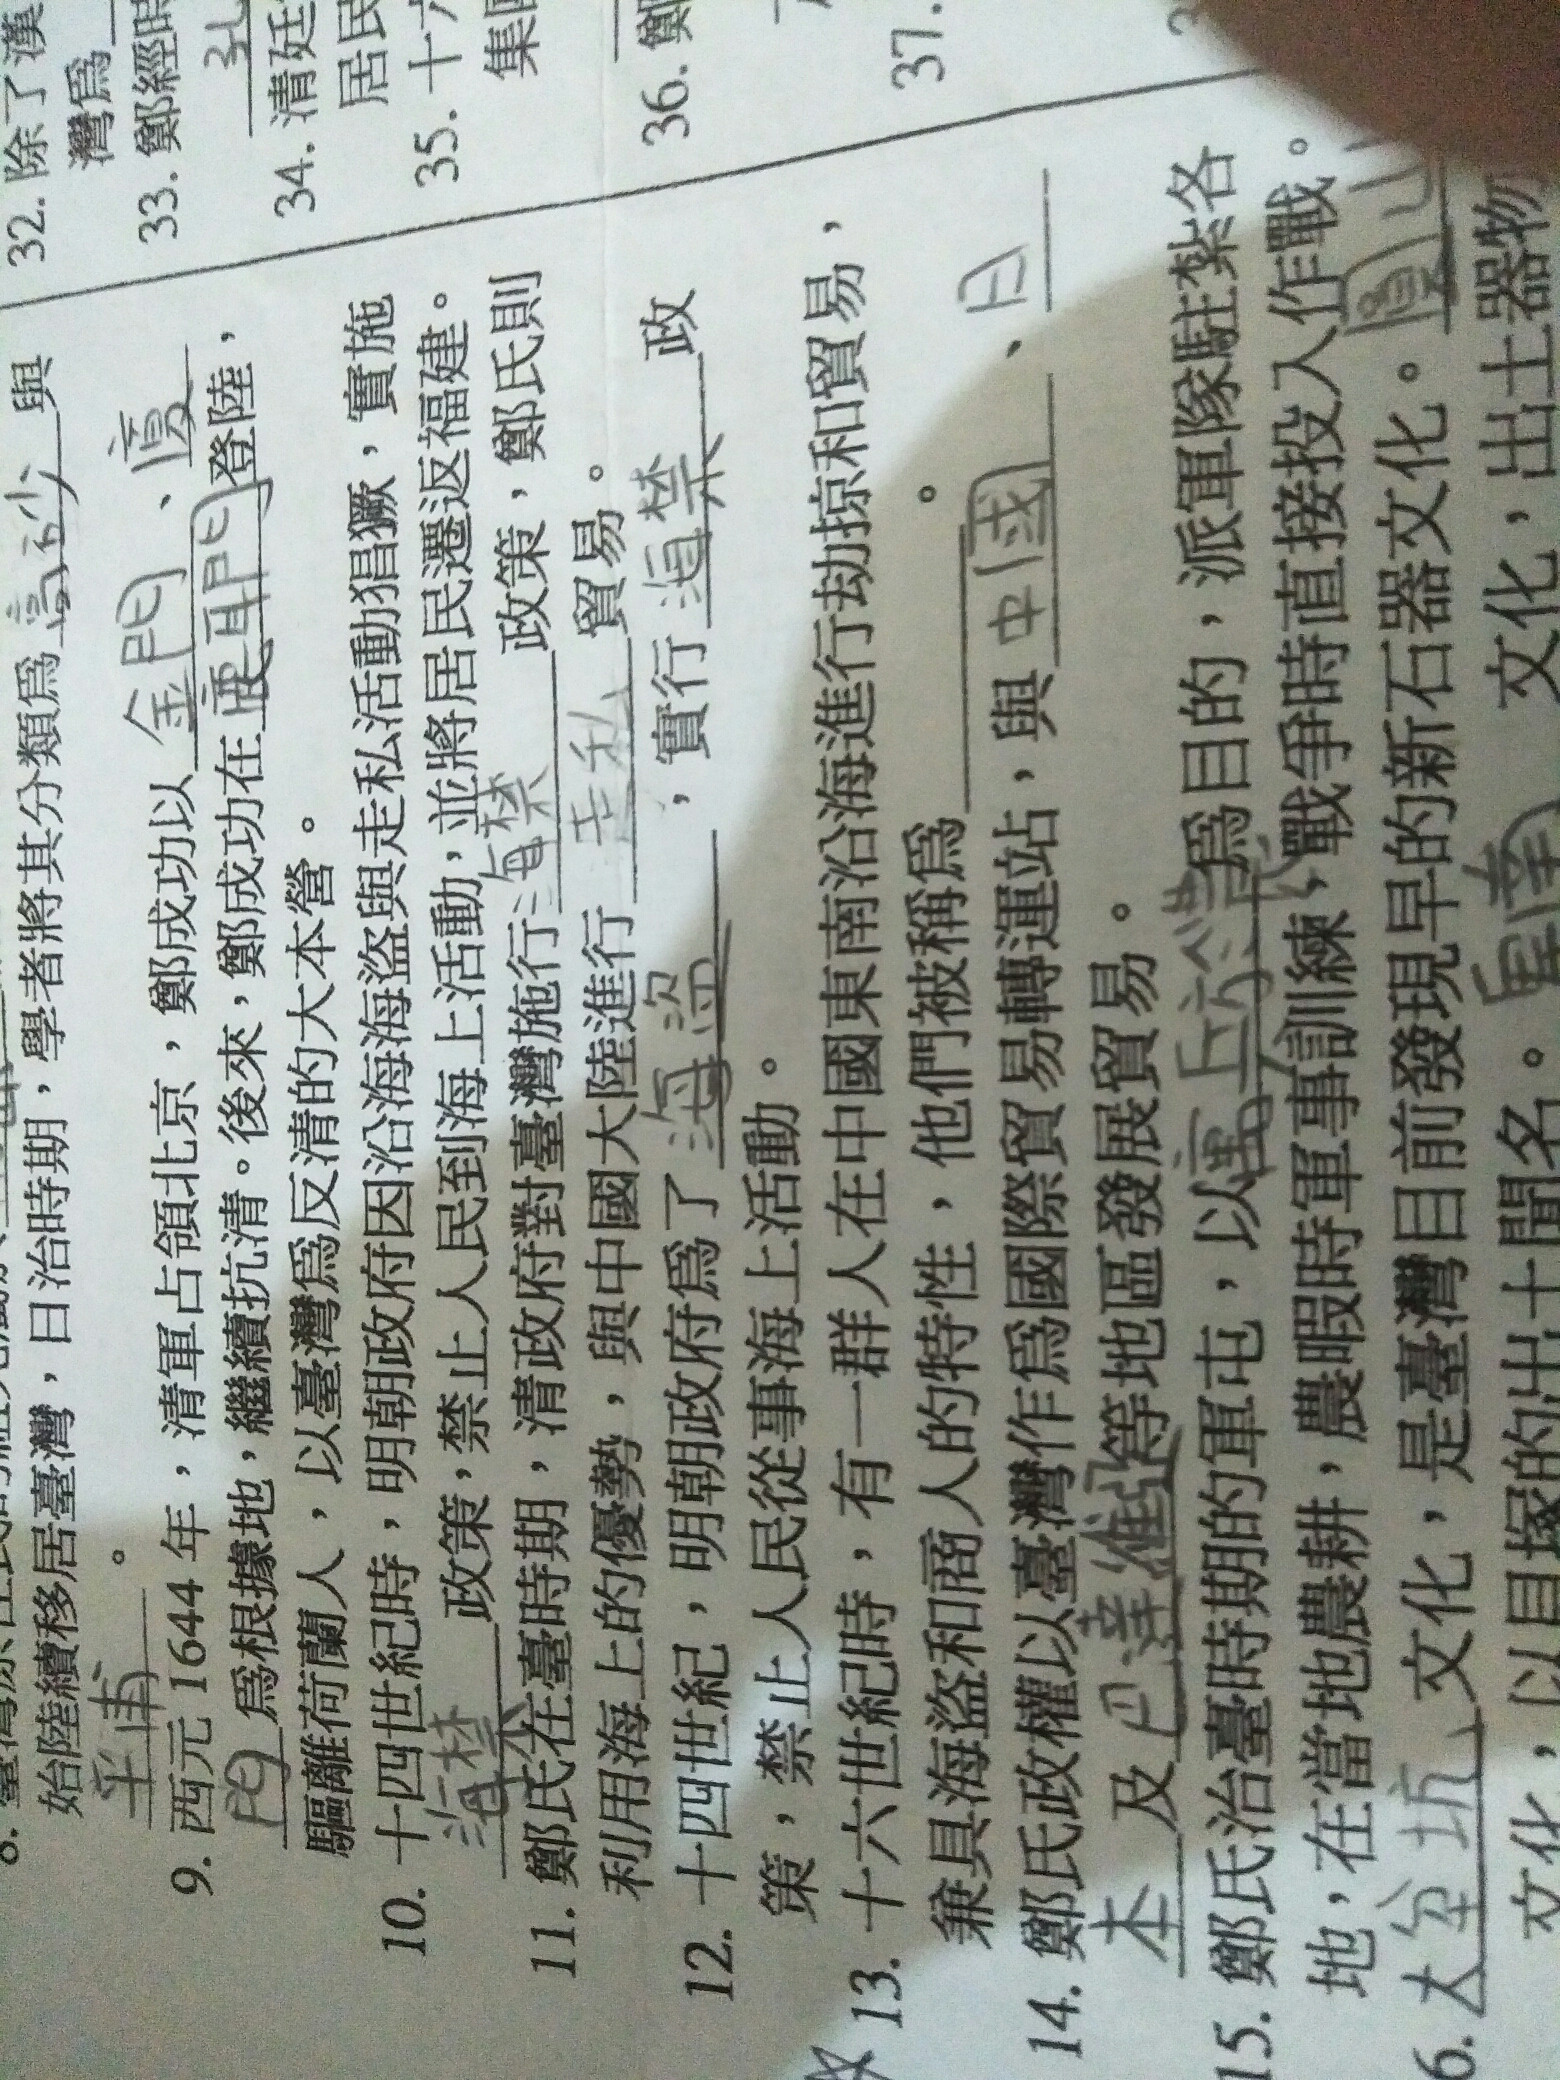 始陸續移居臺灣，日治時期，學者將其分類為高砂與
平埔。
9. 西元1644年，清軍占領北京，鄭成功以金門、廈
門為根據地，繼續抗清。後來，鄭成功在鹿耳門登陸，
驅離荷蘭人，以臺灣為反清的大本營。
10. 十四世紀時，明朝政府因沿海海盜與走私活動猖獗，實施
海禁政策，禁止人民到海上活動，並將居民遷返福建。
11. 鄭氏在臺時期，清政府對臺灣施行海禁政策，鄭氏則
利用海上的優勢，與中國大陸進行走私貿易。
12. 十四世紀，明朝政府為了海盜，實行海禁政
策，禁止人民從事海上活動。
13. 十六世紀時，有一群人在中國東南沿海進行劫掠和貿易，
兼具海盜和商人的特性，他們被稱為。
14. 鄭氏政權以臺灣作為國際貿易轉運站，與中國、日
本及巴達維亞等地區發展貿易。
15. 鄭氏治臺時期的軍屯，以寓兵於農為目的，派軍隊駐紮各
地，在當地農耕，農暇時軍事訓練，戰爭時直接投入作戰。
6. 大坌坑文化，是臺灣目前發現早的新石器文化。圓山
文化，以貝塚的出土聞名。卑南文化，出土器物
32. 除了漢
灣為
33. 鄭經時
34. 清廷
居民
35. 十六
集團
36. 鄭
37.